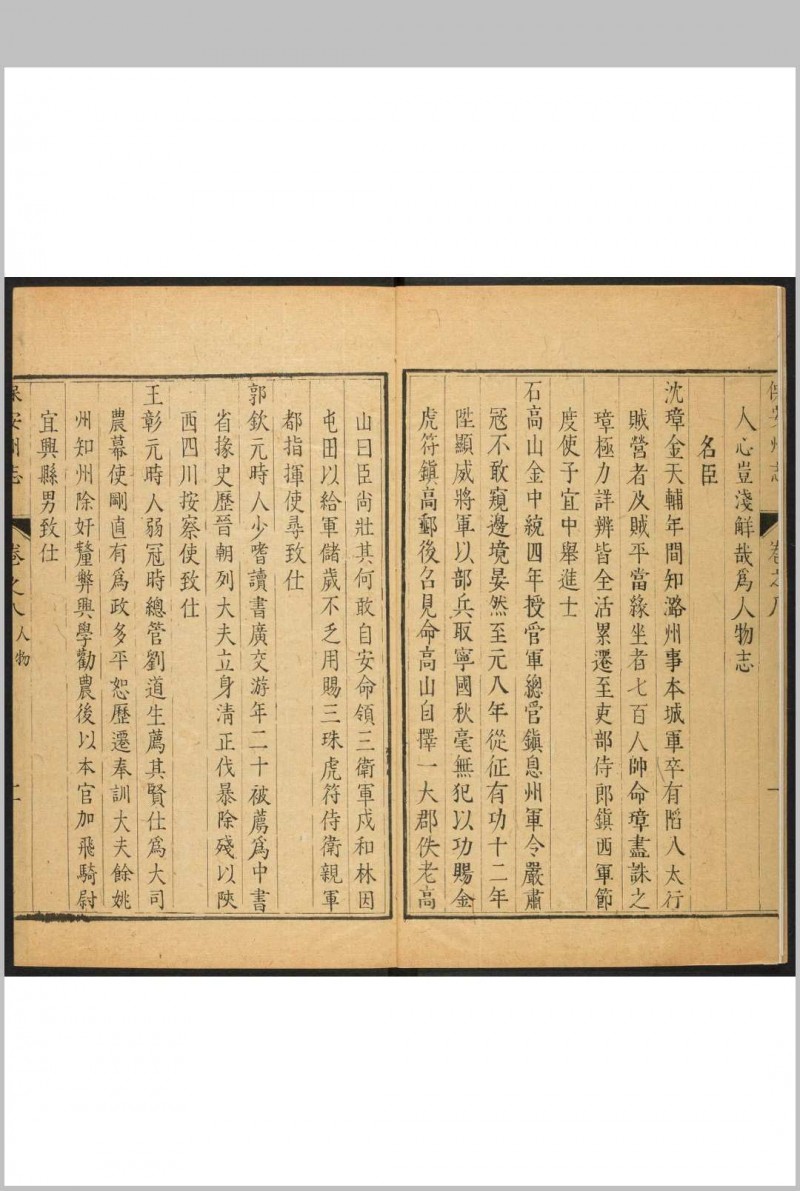 保安州志
卷之八
一
人心豈淺鮮哉爲人物志
名臣
沈璋金天輔年間知潞州事本城軍卒有陷入太行
賊營者及賊平當緣坐者七百人帥命璋盡誅之
璋極力詳辨皆全活累遷至吏部侍郎鎮西軍節
度使子宜中舉進士
石高山金中統四年授管軍總管鎮息州軍令嚴肅
冦不敢窺邊境晏然至元八年從征有功十二年
陞顯威將軍以部兵取寧國秋毫無犯以功賜金
虎符鎮高郵後召見命高山自擇一大郡佚老高
山曰臣尚壯其何敢自安命領三衛軍戍和林因
屯田以給軍儲歲不乏用賜三珠虎符侍衛親軍
都指揮使尋致仕
郭欽元時人少嗜讀書廣交游年二十被薦爲中書
省掾史歷晉朝列大夫立身清正伐暴除殘以陝
西四川按察使致仕
王彰元時人弱冠時總管劉道生薦其賢仕爲大司
農幕使剛直有爲政多平恕歷遷奉訓大夫餘姚
州知州除奸釐弊興學勸農後以本官加飛騎尉
宜興縣男致仕
保安州志
卷之八
人物
二